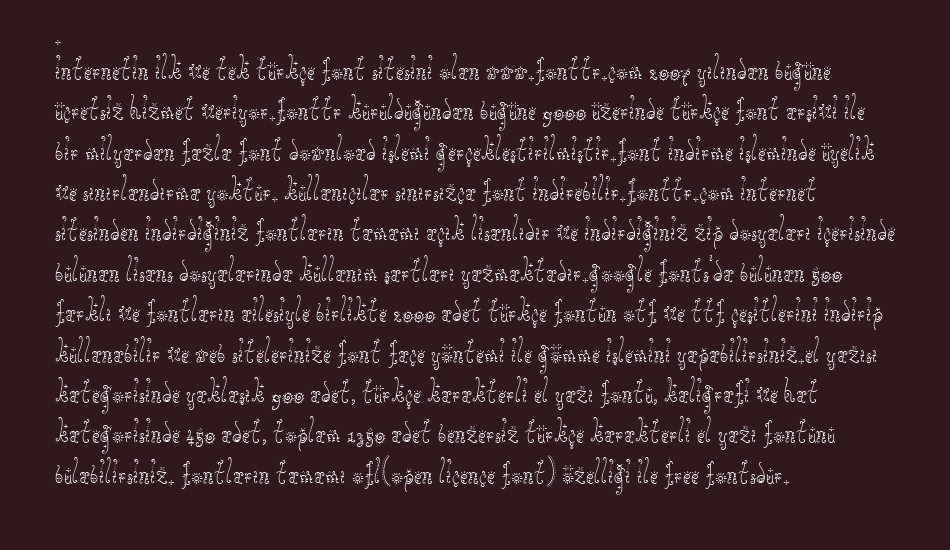 .
internetin ilk ve tek türkçe font sitesini olan www.fonttr.com 2007 yilindan bugüne
ücretsiz hizmet veriyor.fonttr kuruldugundan bugüne 9000 üzerinde türkçe font arsivi ile
bir milyardan fazla font download islemi gerçeklestirilmistir.font indirme isleminde üyelik
ve sinirlandirma yoktur. kullanicilar sinirsizca font indirebilir.fonttr.com internet
sitesinden indirdiginiz fontlarin tamami açik lisanlidir ve indirdiginiz zip dosyalari içerisinde
bulunan lisans dosyalarinda kullanim sartlari yazmaktadir.google fonts'da bulunan 500
farkli ve fontlarin ailesiyle birlikte 2000 adet türkçe fontun otf ve ttf çesitlerini indirip
kullanabilir ve web sitelerinize font face yöntemi ile gömme islemini yapabilirsiniz.el yazisi
kategorisinde yaklasik 900 adet, türkçe karakterli el yazi fontu, kaligrafi ve hat
kategorisinde 450 adet, toplam 1350 adet benzersiz türkçe karakterli el yazi fontunu
bulabilirsiniz. fontlarin tamami ofl(open licence font) özelligi ile free fontsdur.